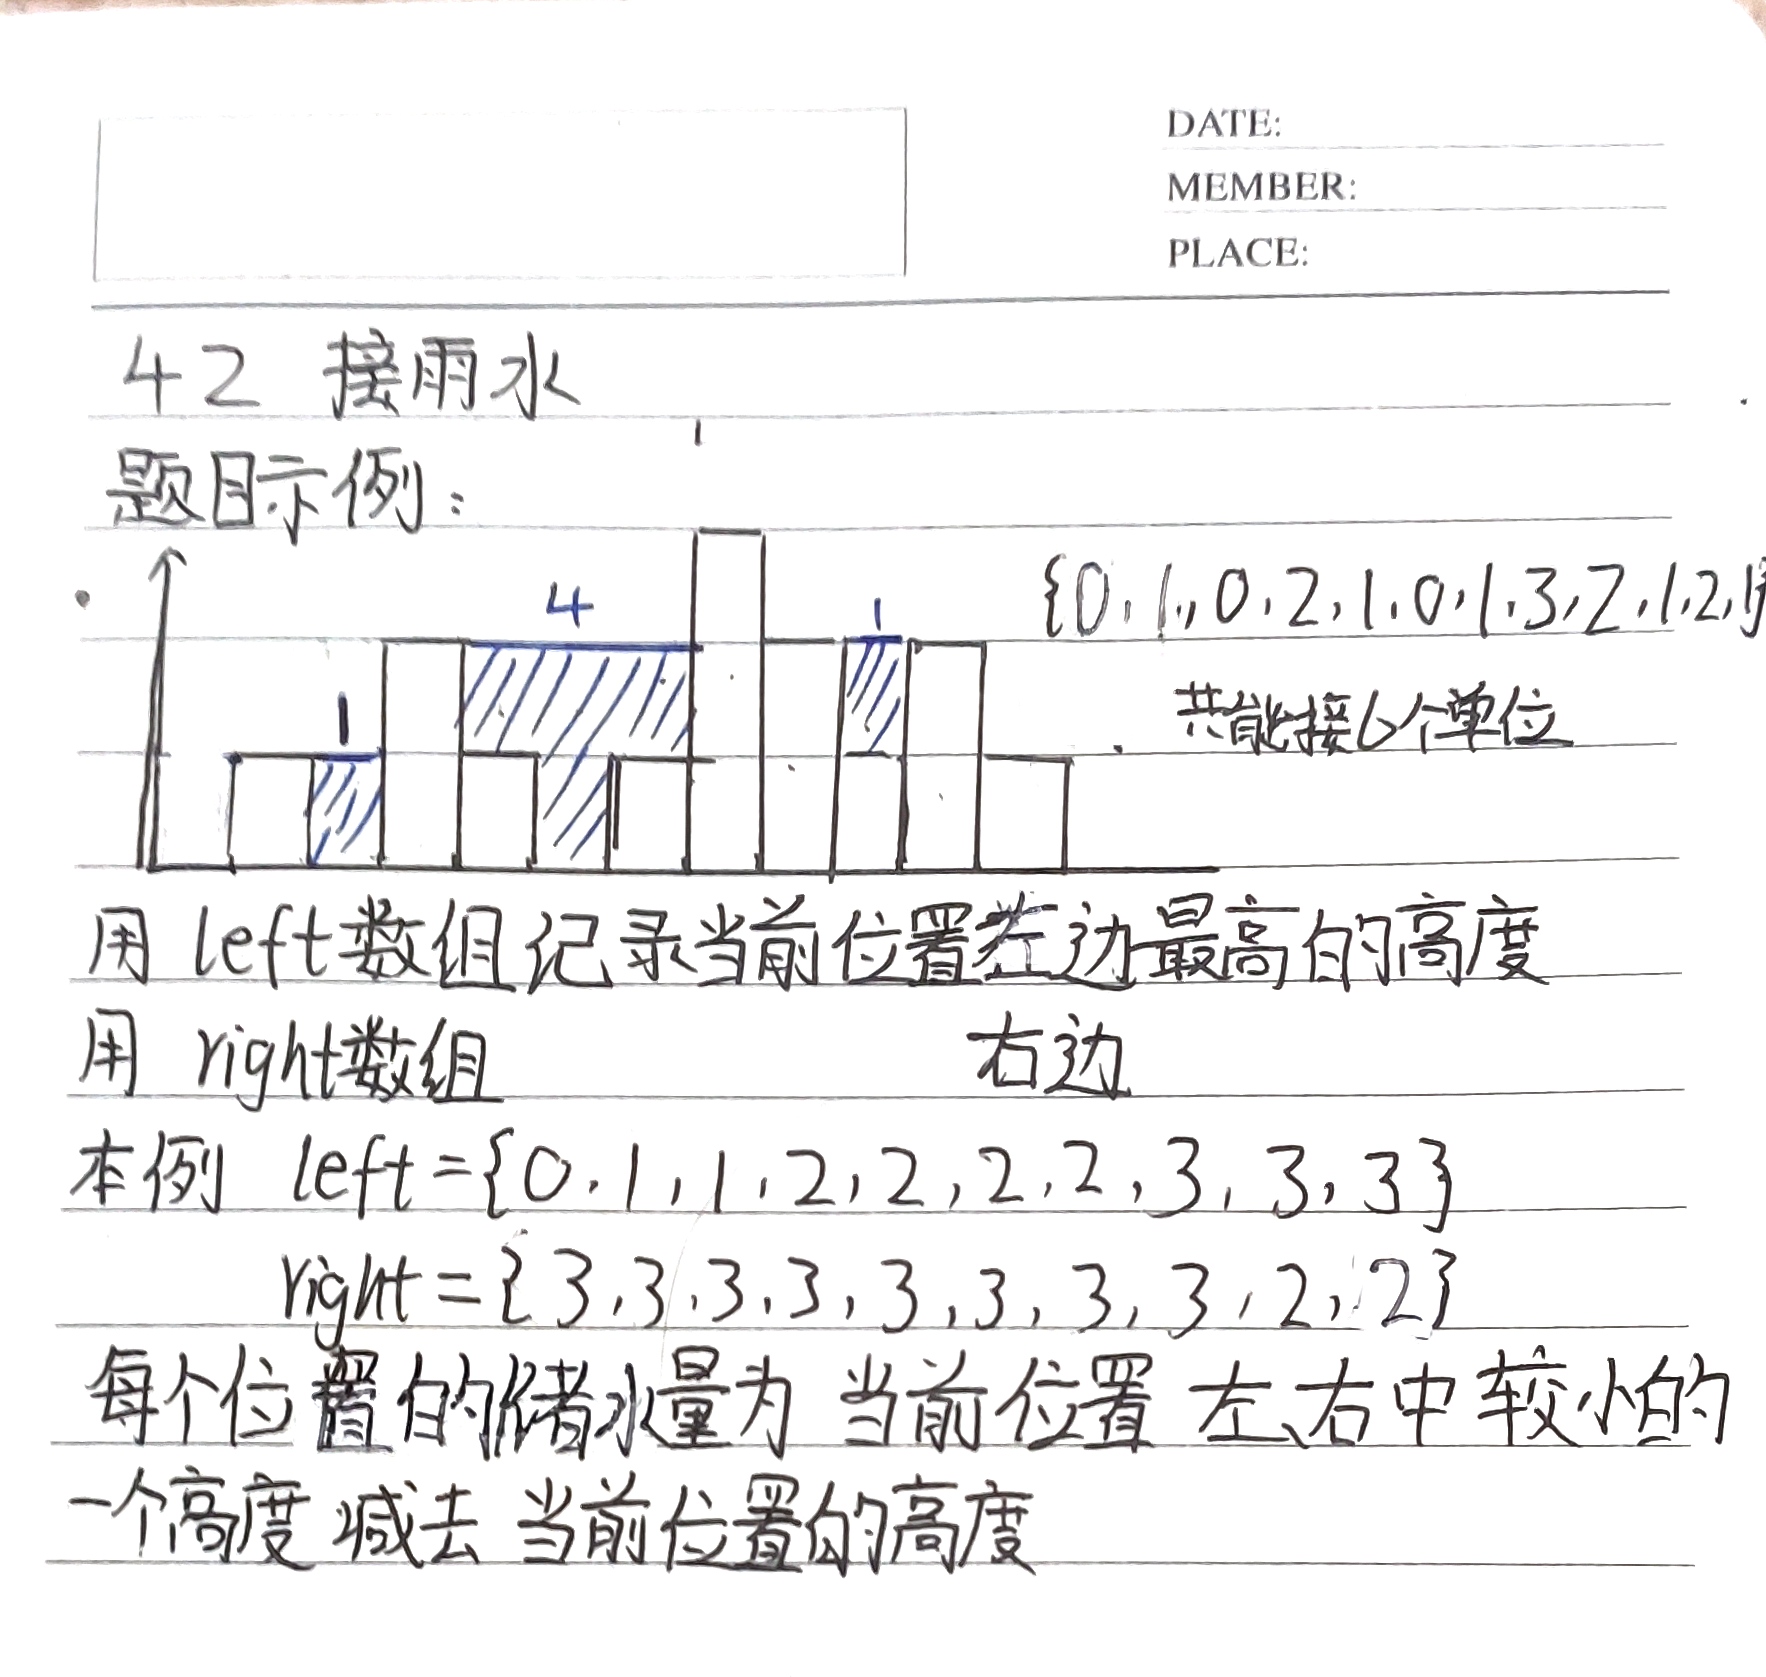 DATE:
MEMBER:
PLACE:
42 接雨水
题目示例:
{0,1,0,2,1,0,1,3,2,1,2,1}
4
1
1
共能接6个单位
用 left数组记录当前位置左边最高的高度
用 right数组 右边
本例 left={0,1,1,2,2,2,2,3,3,3}
right={3,3,3,3,3,3,3,3,2,2}
每个位置的储水量为 当前位置 左、右中较小的
一个高度 减去 当前位置的高度